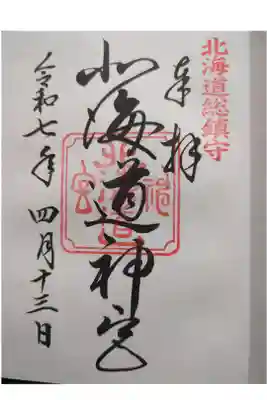 北海道総鎮守
奉拝
北海道神宮
令和七年 四月十三日
北海道神宮